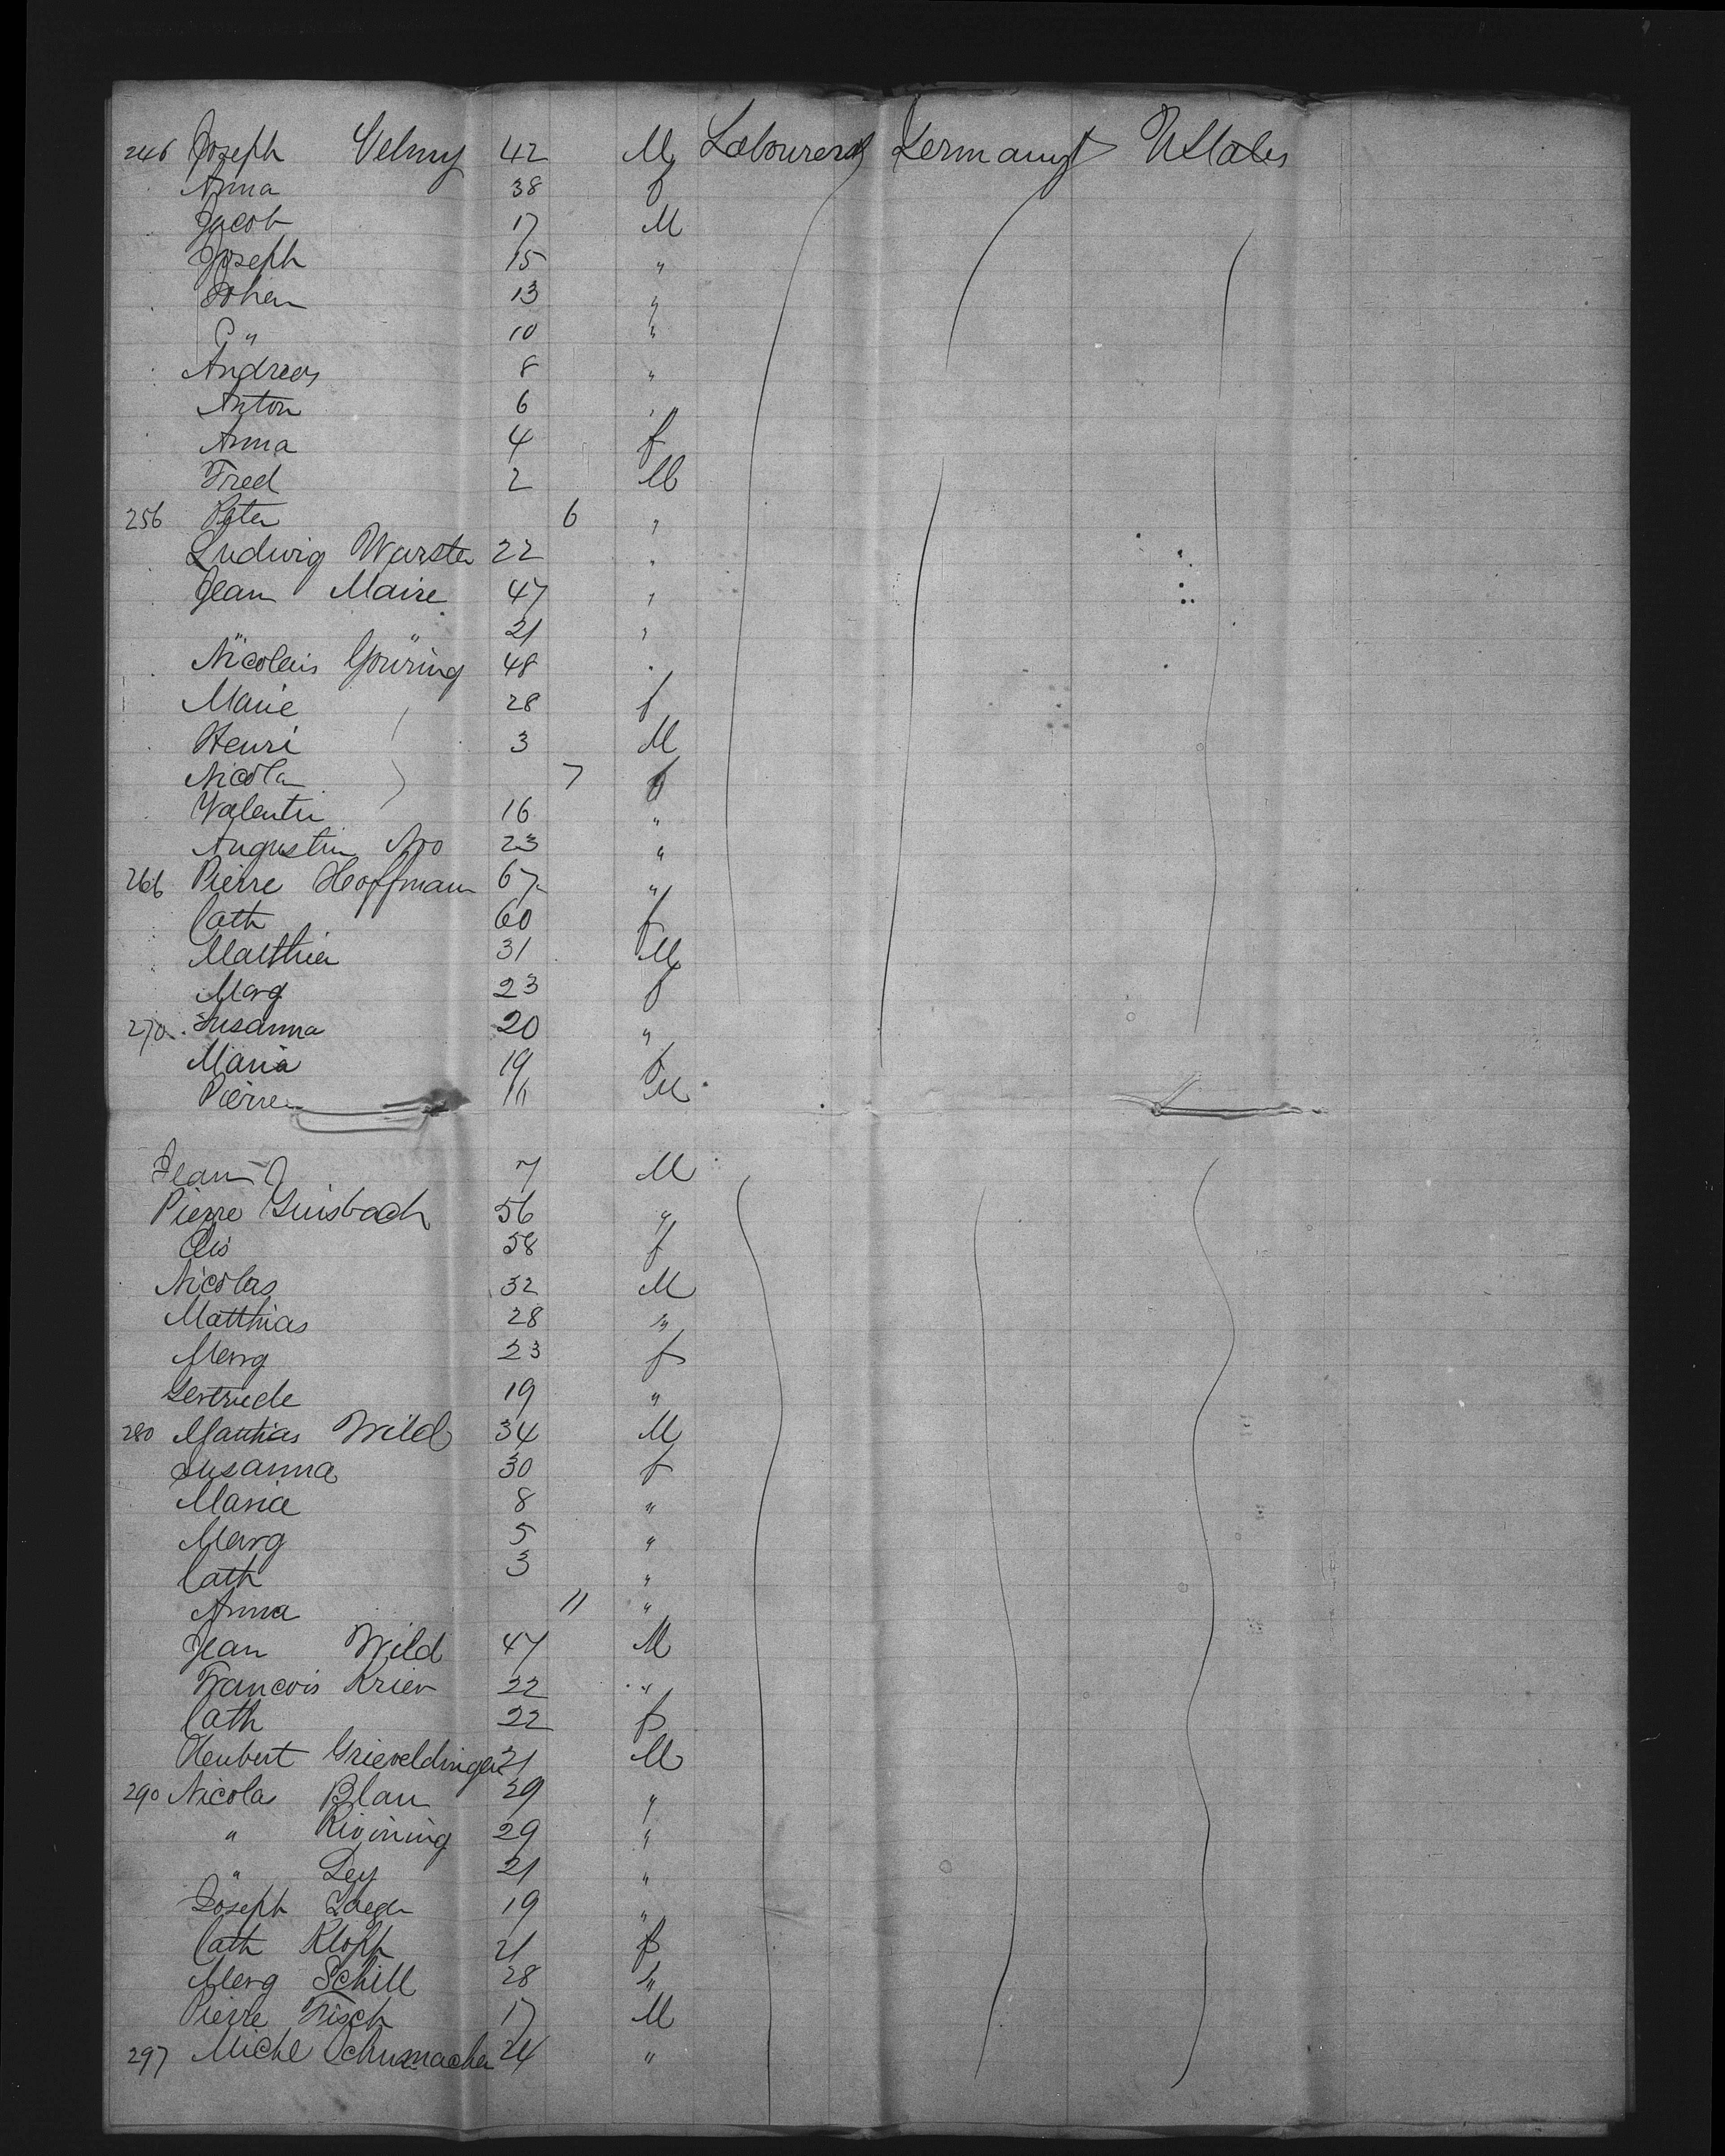 246 Joseph Velmy 42 M Labourers Germany UStates
Anna 38 f
Jacob 17 M
Joseph 15 "
Johan 13 "
" 10 "
Andreas 8 "
Anton 6 "
Anna 4 f
Fred 2 M
256 Peter 6 "
Ludwig Wurster 22 "
Jean Maire 47 "
" " 21 "
Nicolaus Gouring 48 "
Marie 28 f
Henri 3 M
Nicola 7 f
Valentin 16 "
Augustin 23 "
266 Pierre Hoffmann 67 "
Cath 60 f
Matthia 31 M
Marg 23 f
270 Susanna 20 "
Maria 19 f
Pierre 16 M
Jean 7 M
Pierre Guisbach 56 "
Elis 58 f
Nicolas 32 M
Matthias 28 "
Marg 23 f
Gertrude 19 "
280 Matthias Wild 34 M
Susanna 30 f
Maria 8 "
Marg 5 "
Cath 3 "
Anna 11 "
Jean Wild 47 M
Francois Krier 22 "
Cath 22 f
Heubert Grieveldinger 21 M
290 Nicola Blau 29 "
" 29 "
" Ley 21 "
Joseph Jaeger 19 "
Cath Klopp 21 f
Marg Schill 28 "
Pierre Frisch 17 M
297 Michl Schumacher 24 "